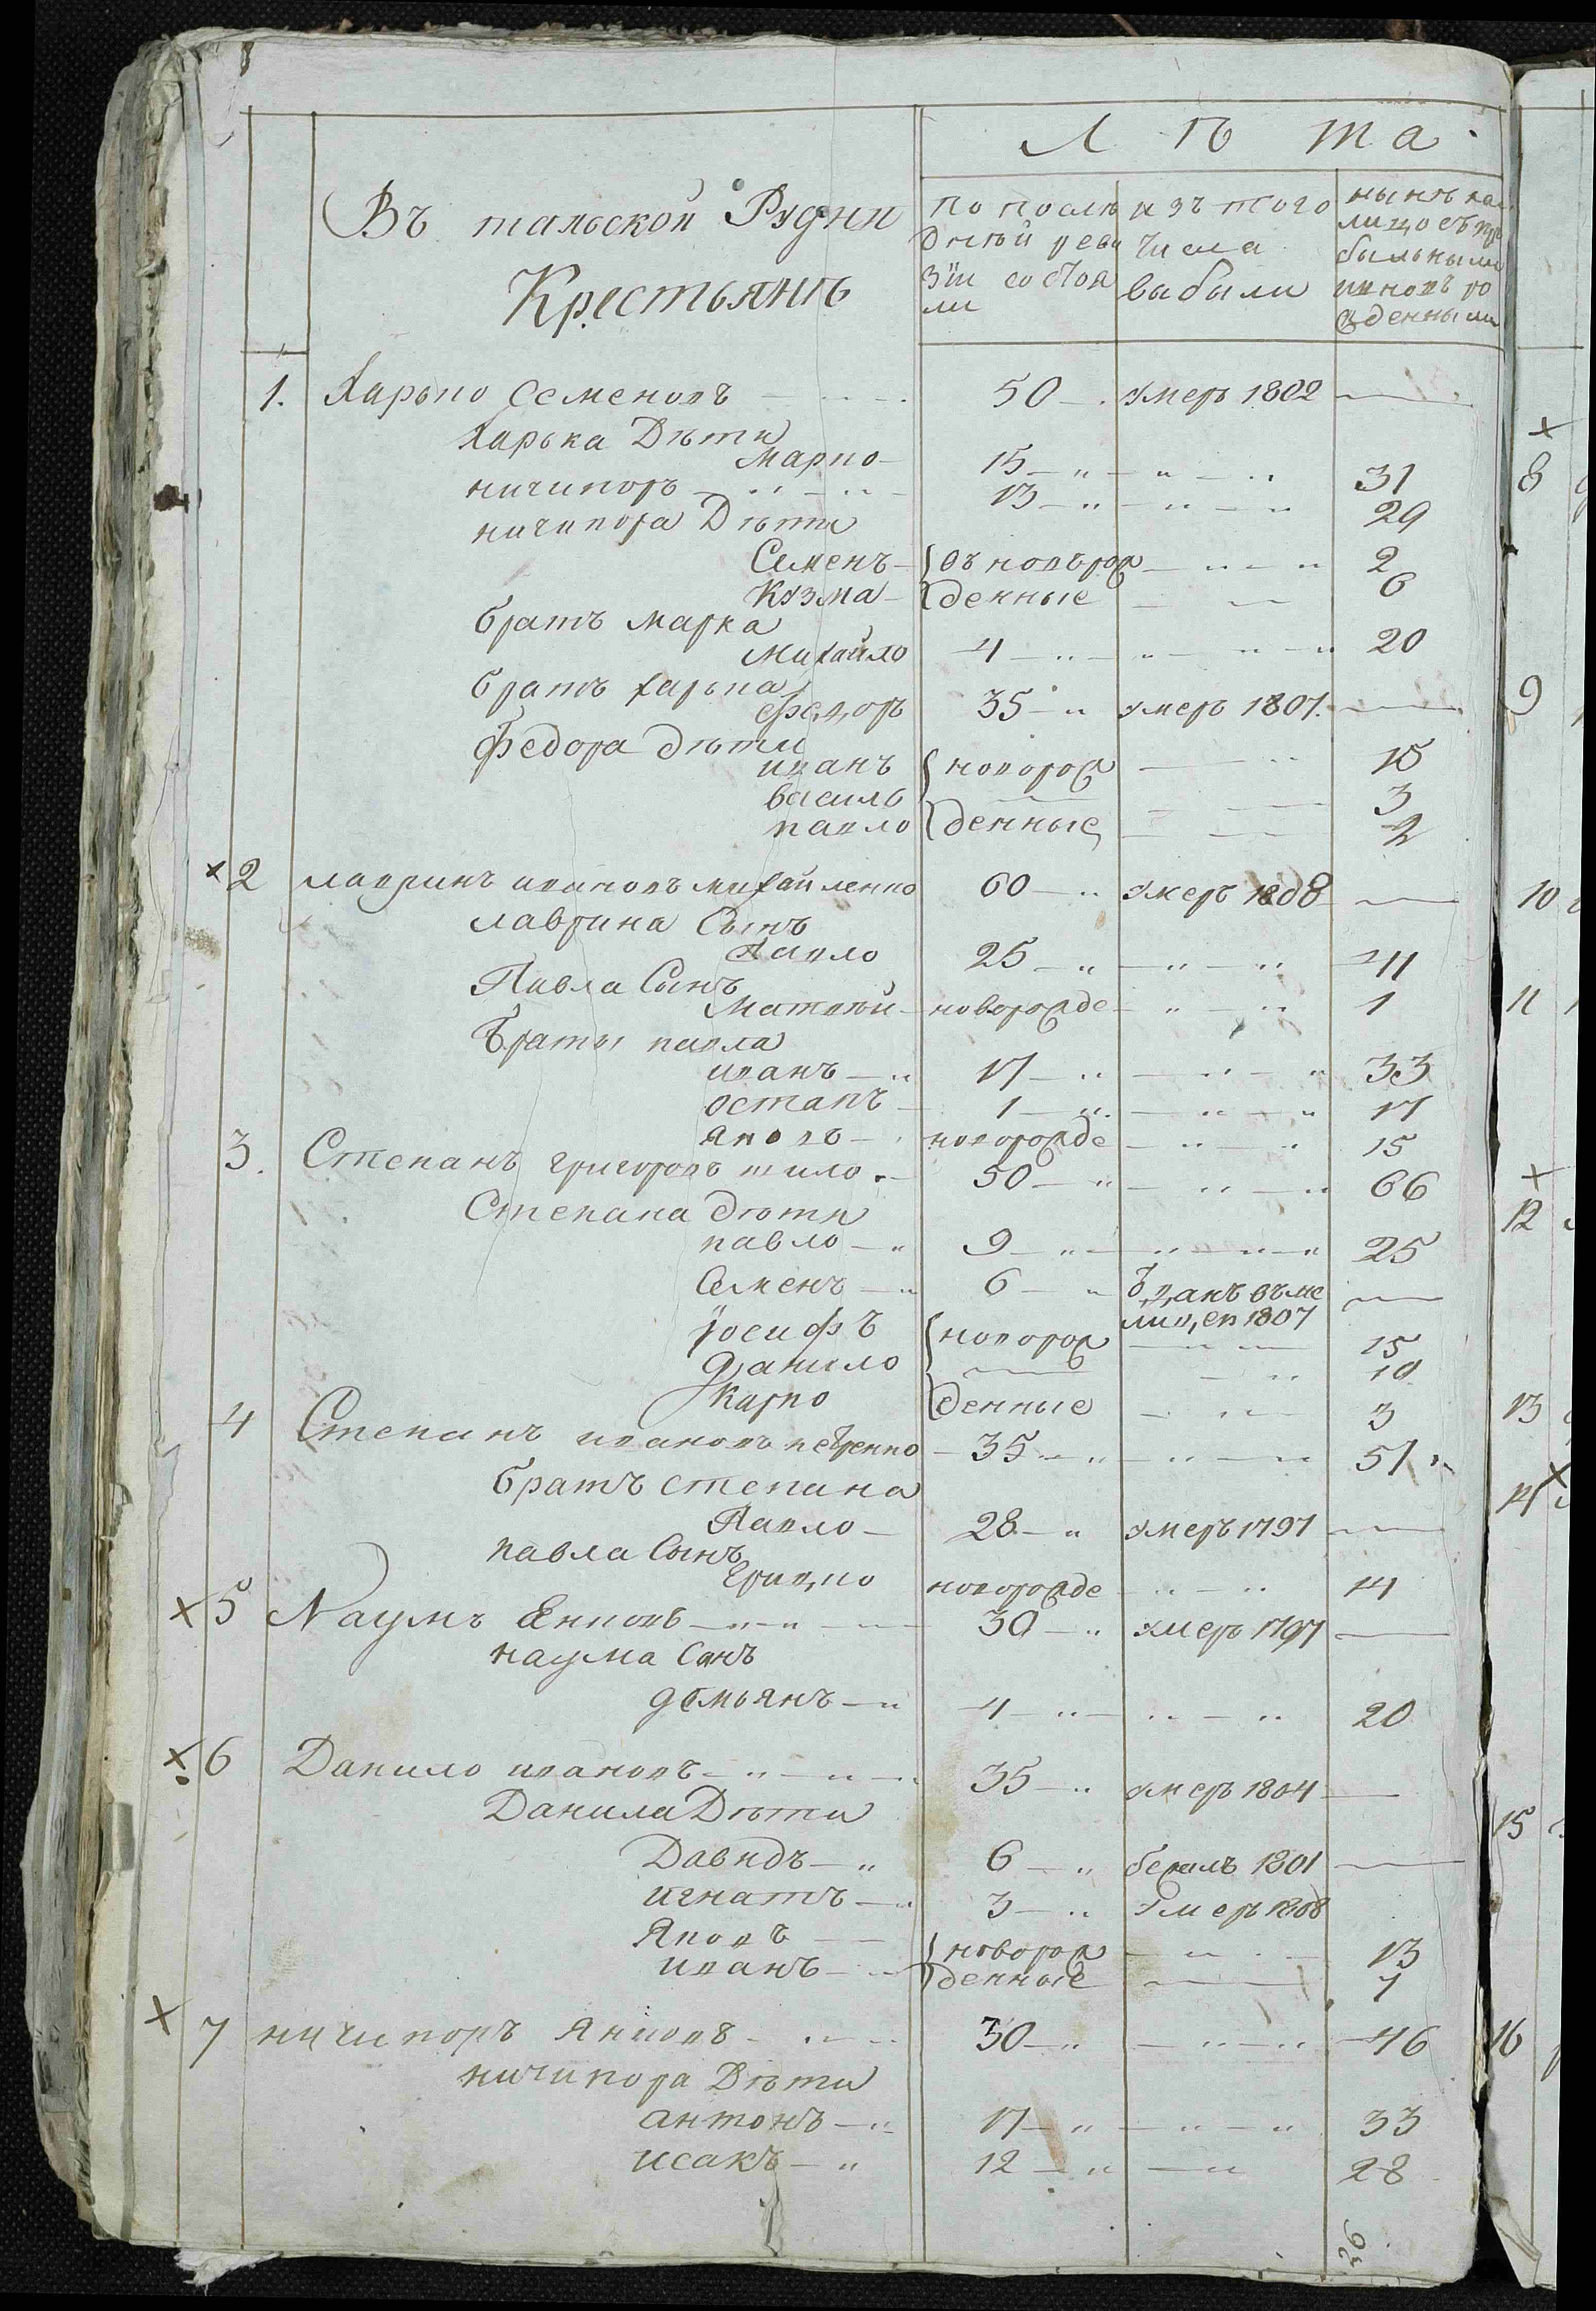 Лѣта
Въ тальской Рудни
Крестьянѣ
по послѣ
дней реви
зіи состоя
ли
изъ того
числа
выбыли
нынѣ на
лицо съ при
былыми
иновъ ро
жденными
1. Харько Семеновъ 50 умеръ 1802
Харька Дѣти
Марко 15 31
ничипоръ 13 29
ничипора Дѣти
Семенъ въ новърож 2
Кузма денные 6
братъ марка
Михайло 4 20
братъ харька
Федоръ 35 умеръ 1807
федора дѣти
иванъ новорож 15
василь 3
павло денные 2
2 лавринъ ивановъ михайленко 60 умеръ 1808
лаврина Сынъ
Павло 25 41
Павла Сынъ
Матвѣй новорожде 1
Браты павла
иванъ 17 33
остапъ 1 17
яковъ новорожде 15
3. Степанъ григоровъ шило 50 66
Степана дѣти
павло 9 25
Семенъ 6 Ѿданъ въ ми
лиц,ею 1807
Іосифъ новорож 15
Данило 10
Карпо денные 3
4 Степанъ ивановъ петренко 35 51
братъ степана
Павло 28 умеръ 1797
павла Сынъ
Грицко новорожде 14
5 Наумъ Янковъ 30 умеръ 1797
наума Сынъ
демьянъ 4 20
6 Данило ивановъ 35 умеръ 1804
Данила Дѣти
Давидъ 6 бежалъ 1801
игнатъ 3 Умеръ 1808
Яковъ новорож 13
иванъ денные 7
7 ничипоръ Янковъ 30 46
ничипора Дѣти
антонъ 17 33
исакъ 12 28
36
8
9
10
11
12
13
14
15
16